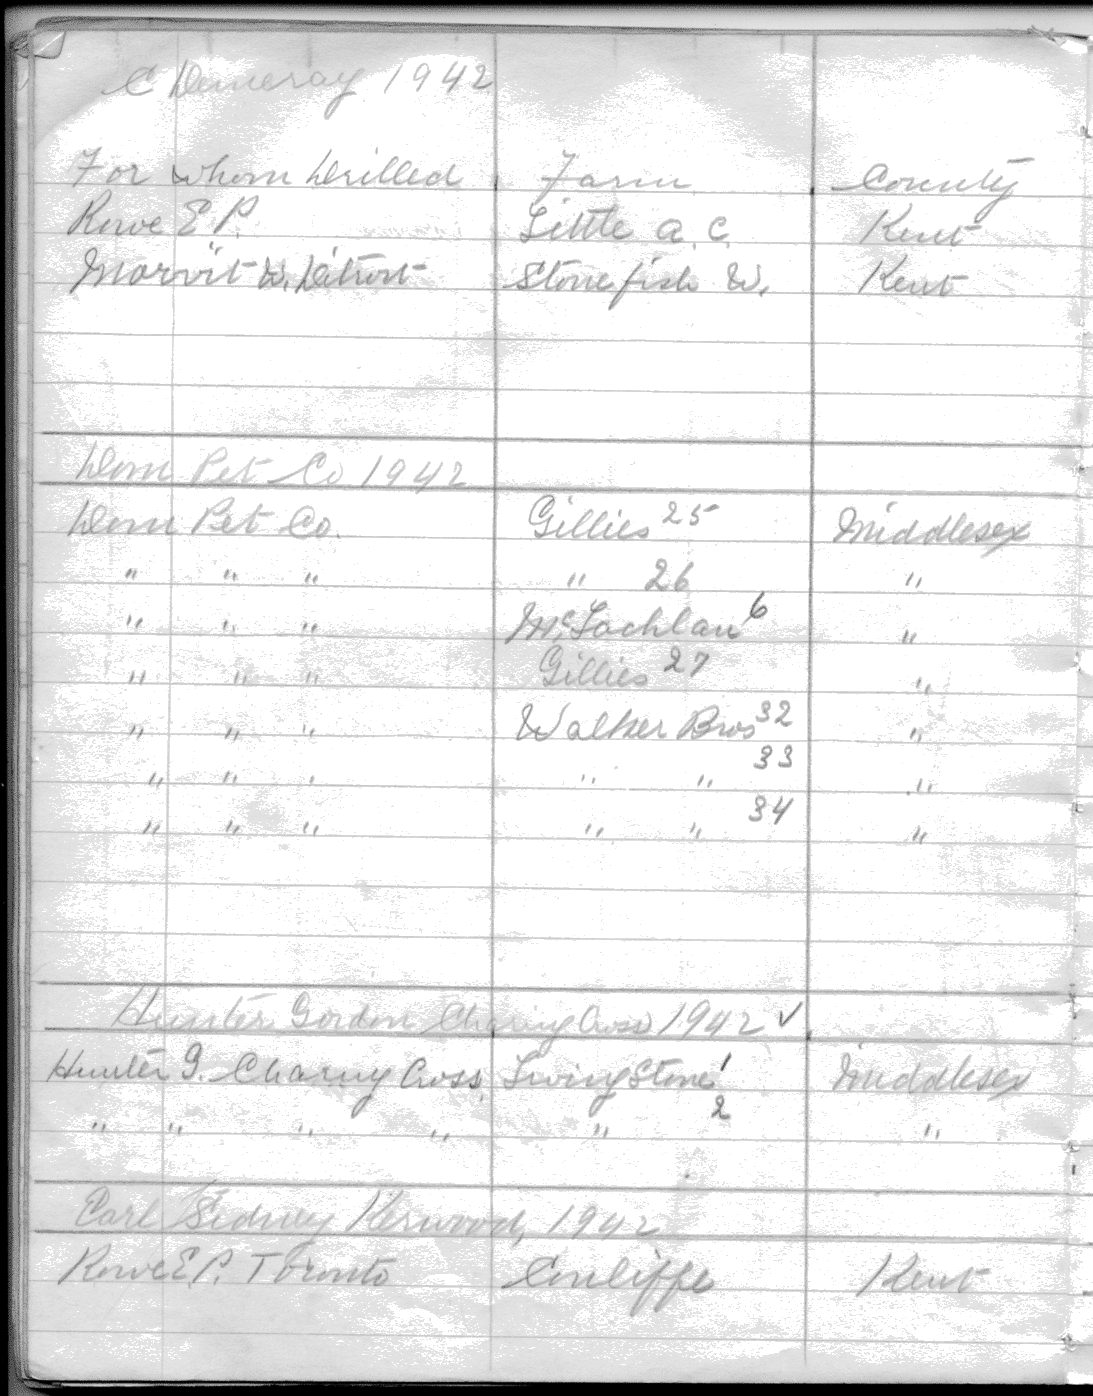 C Demeray 1942
For whom Drilled Farm County
Rowe E P. Little A. C. Kent
W. Detroit Stonefish W. Kent
Dom Pet Co 1942
Dom Pet Co. Gillies 25 Middlesex
" " " " 26 "
" " " McLachlan 6 "
" " " Gillies 27 "
" " " Walker Bros 32 "
" " " " " 33 "
" " " " " 34 "
Hunter Gordon Charing Cross 1942 ✓
Hunter G. Charing Cross, Livingstone 1 Middlesex
" " " " " 2 "
Earl Sidney Kerwood, 1942
Rowe E P. Toronto Cunliffe Kent